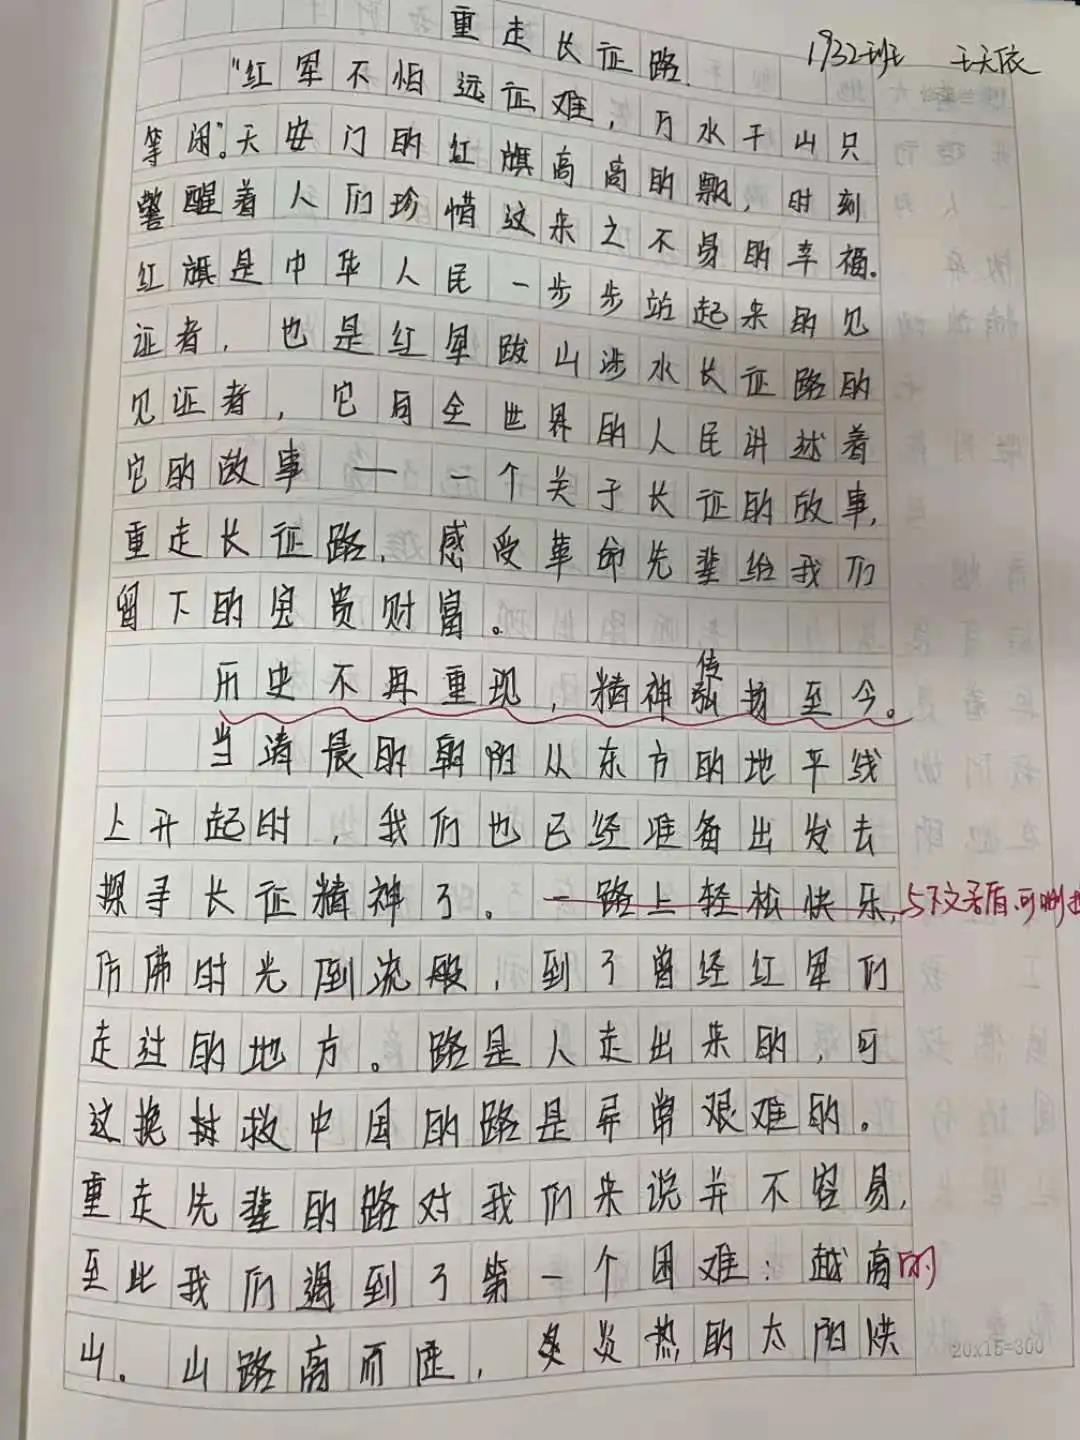 重走长征路
1932班 王天依
“红军不怕远征难，万水千山只
等闲”。天安门的红旗高高的飘，时刻
警醒着人们珍惜这来之不易的幸福。
红旗是中华人民一步步站起来的见
证者，也是红军跋山涉水长征路的
见证者，它向全世界的人民讲述着
它的故事——一个关于长征的故事，
重走长征路，感受革命先辈给我们
留下的宝贵财富。
历史不再重现，精神弘扬至今。
传
当清晨的朝阳从东方的地平线
上升起时，我们也已经准备出发去
探寻长征精神了。一路上轻松快乐，
与下文矛盾，可删
仿佛时光倒流般，到了曾经红军们
走过的地方。路是人走出来的，可
这挽救中国的路是异常艰难的。
重走先辈的路对我们来说并不容易，
至此我们遇到了第一个困难：越高的
山。山路高而陡，炎热的太阳烘
20x15=300